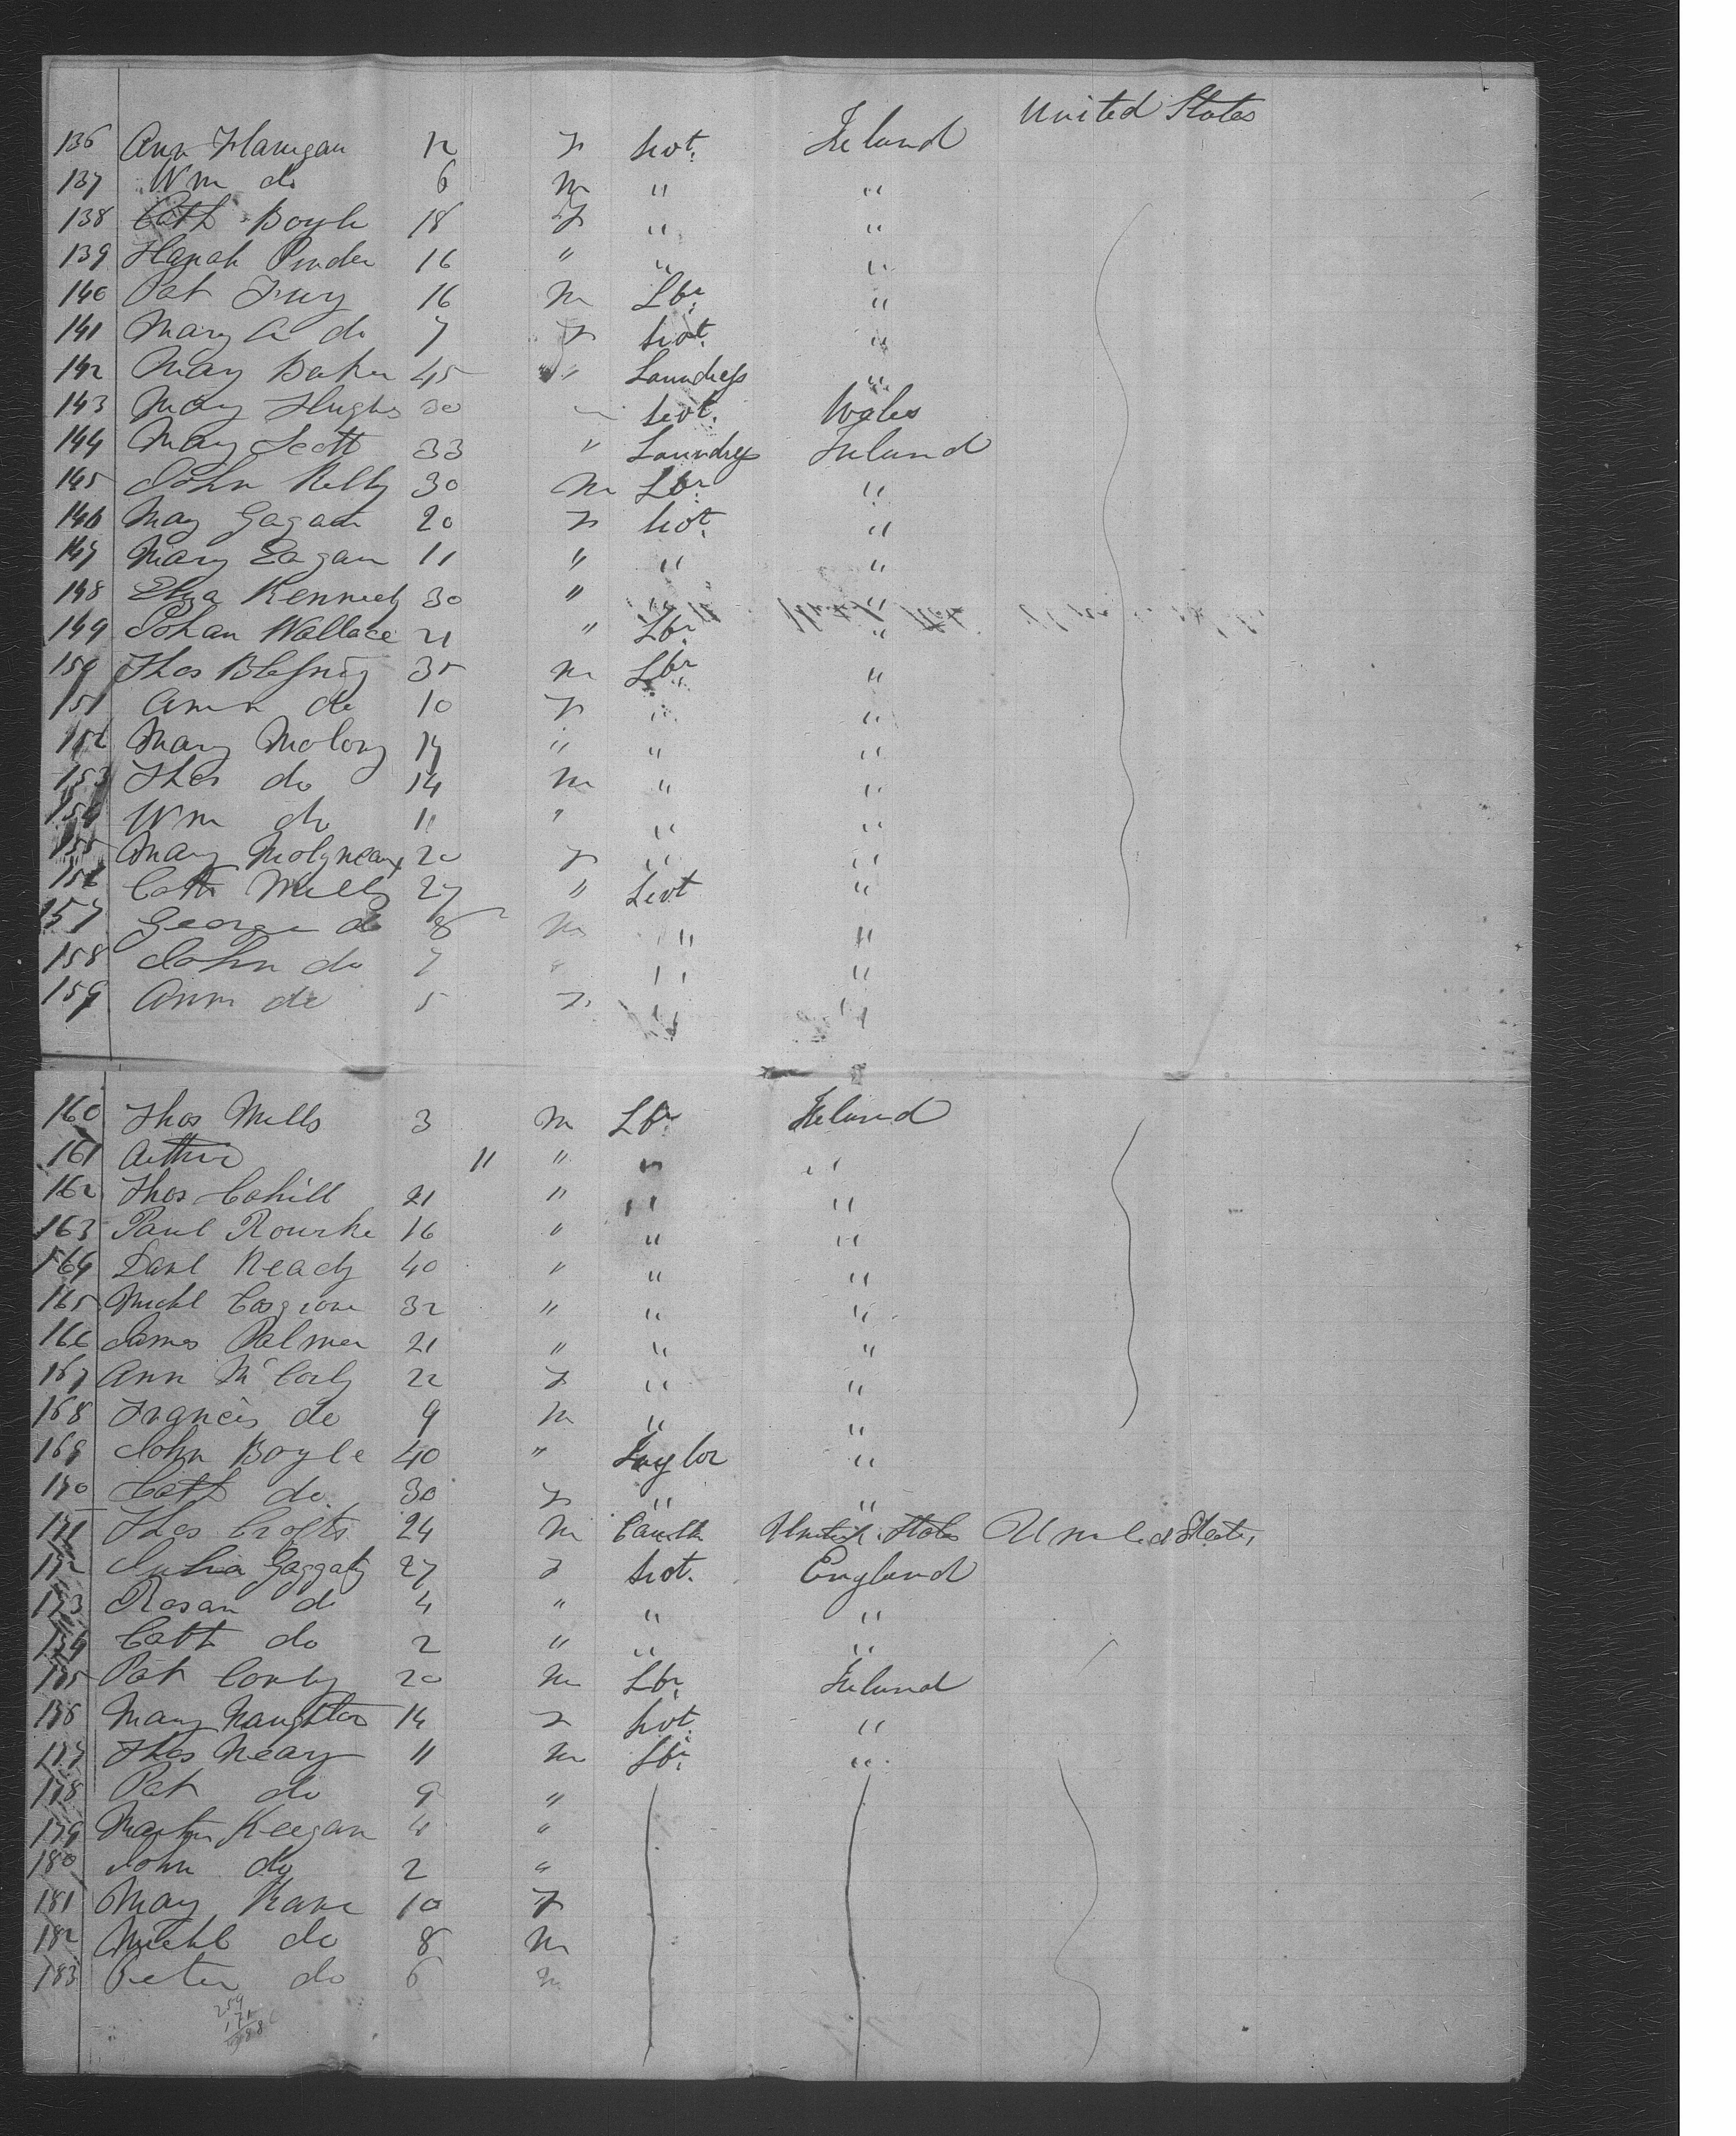 United States
136 Ann Flanigan 12 F Svt. Ireland
137 Wm do 6 M " "
138 Cath Boyle 18 F " "
139 Hanah 16 " " "
140 Pat 16 M Lbr "
141 Mary A do 7 F Svt. "
142 Mary Baker 45 " Laundress "
143 Mary Hughs 30 " Svt. Wales
144 Mary Scott 33 " Laundress Ireland
145 John Kelly 30 M Lbr "
146 May Gagan 20 F Svt. "
147 Mary Eagan 11 " " "
148 Eliza Kennedy 30 " " "
149 Johan Wallace 21 " Lbr "
150 Thos 35 M Lbr "
151 Ann do 10 F " "
152 Mary Molony 17 " " "
153 Thos do 14 M " "
154 Wm do 11 " " "
155 Mary Molyneaux 20 F " "
156 Cath Mills 27 " Svt "
157 George do 8 M " "
158 John do 7 " " "
159 Ann do 5 F " "
160 Thos Mills 3 M Lbr Ireland
161 Arthur 11 " " "
162 Thos Cahill 21 " " "
163 Paul Rourke 16 " " "
164 Danl Ready 40 " " "
165 Michl Cosgrove 32 " " "
166 James Palmer 21 " " "
167 Ann McCorly 22 F " "
168 Francis do 9 M " "
169 John Boyle 40 " Taylor "
170 Cath do 30 F " "
171 Thos Crofts 24 M United States United States
172 Julia 27 F Svt. England
173 Rosan do 4 " " "
174 Cath do 2 " " "
175 Pat Conly 20 M Lbr Ireland
176 Mary Naughton 14 F Svt. "
177 Thos Neary 11 M Lbr "
178 Pat do 9 "
179 Martin Keegan 4 "
180 John do 2 "
181 May Kane 10 F
182 Michl do 8 M
183 Peter do 6 M
259
171
88